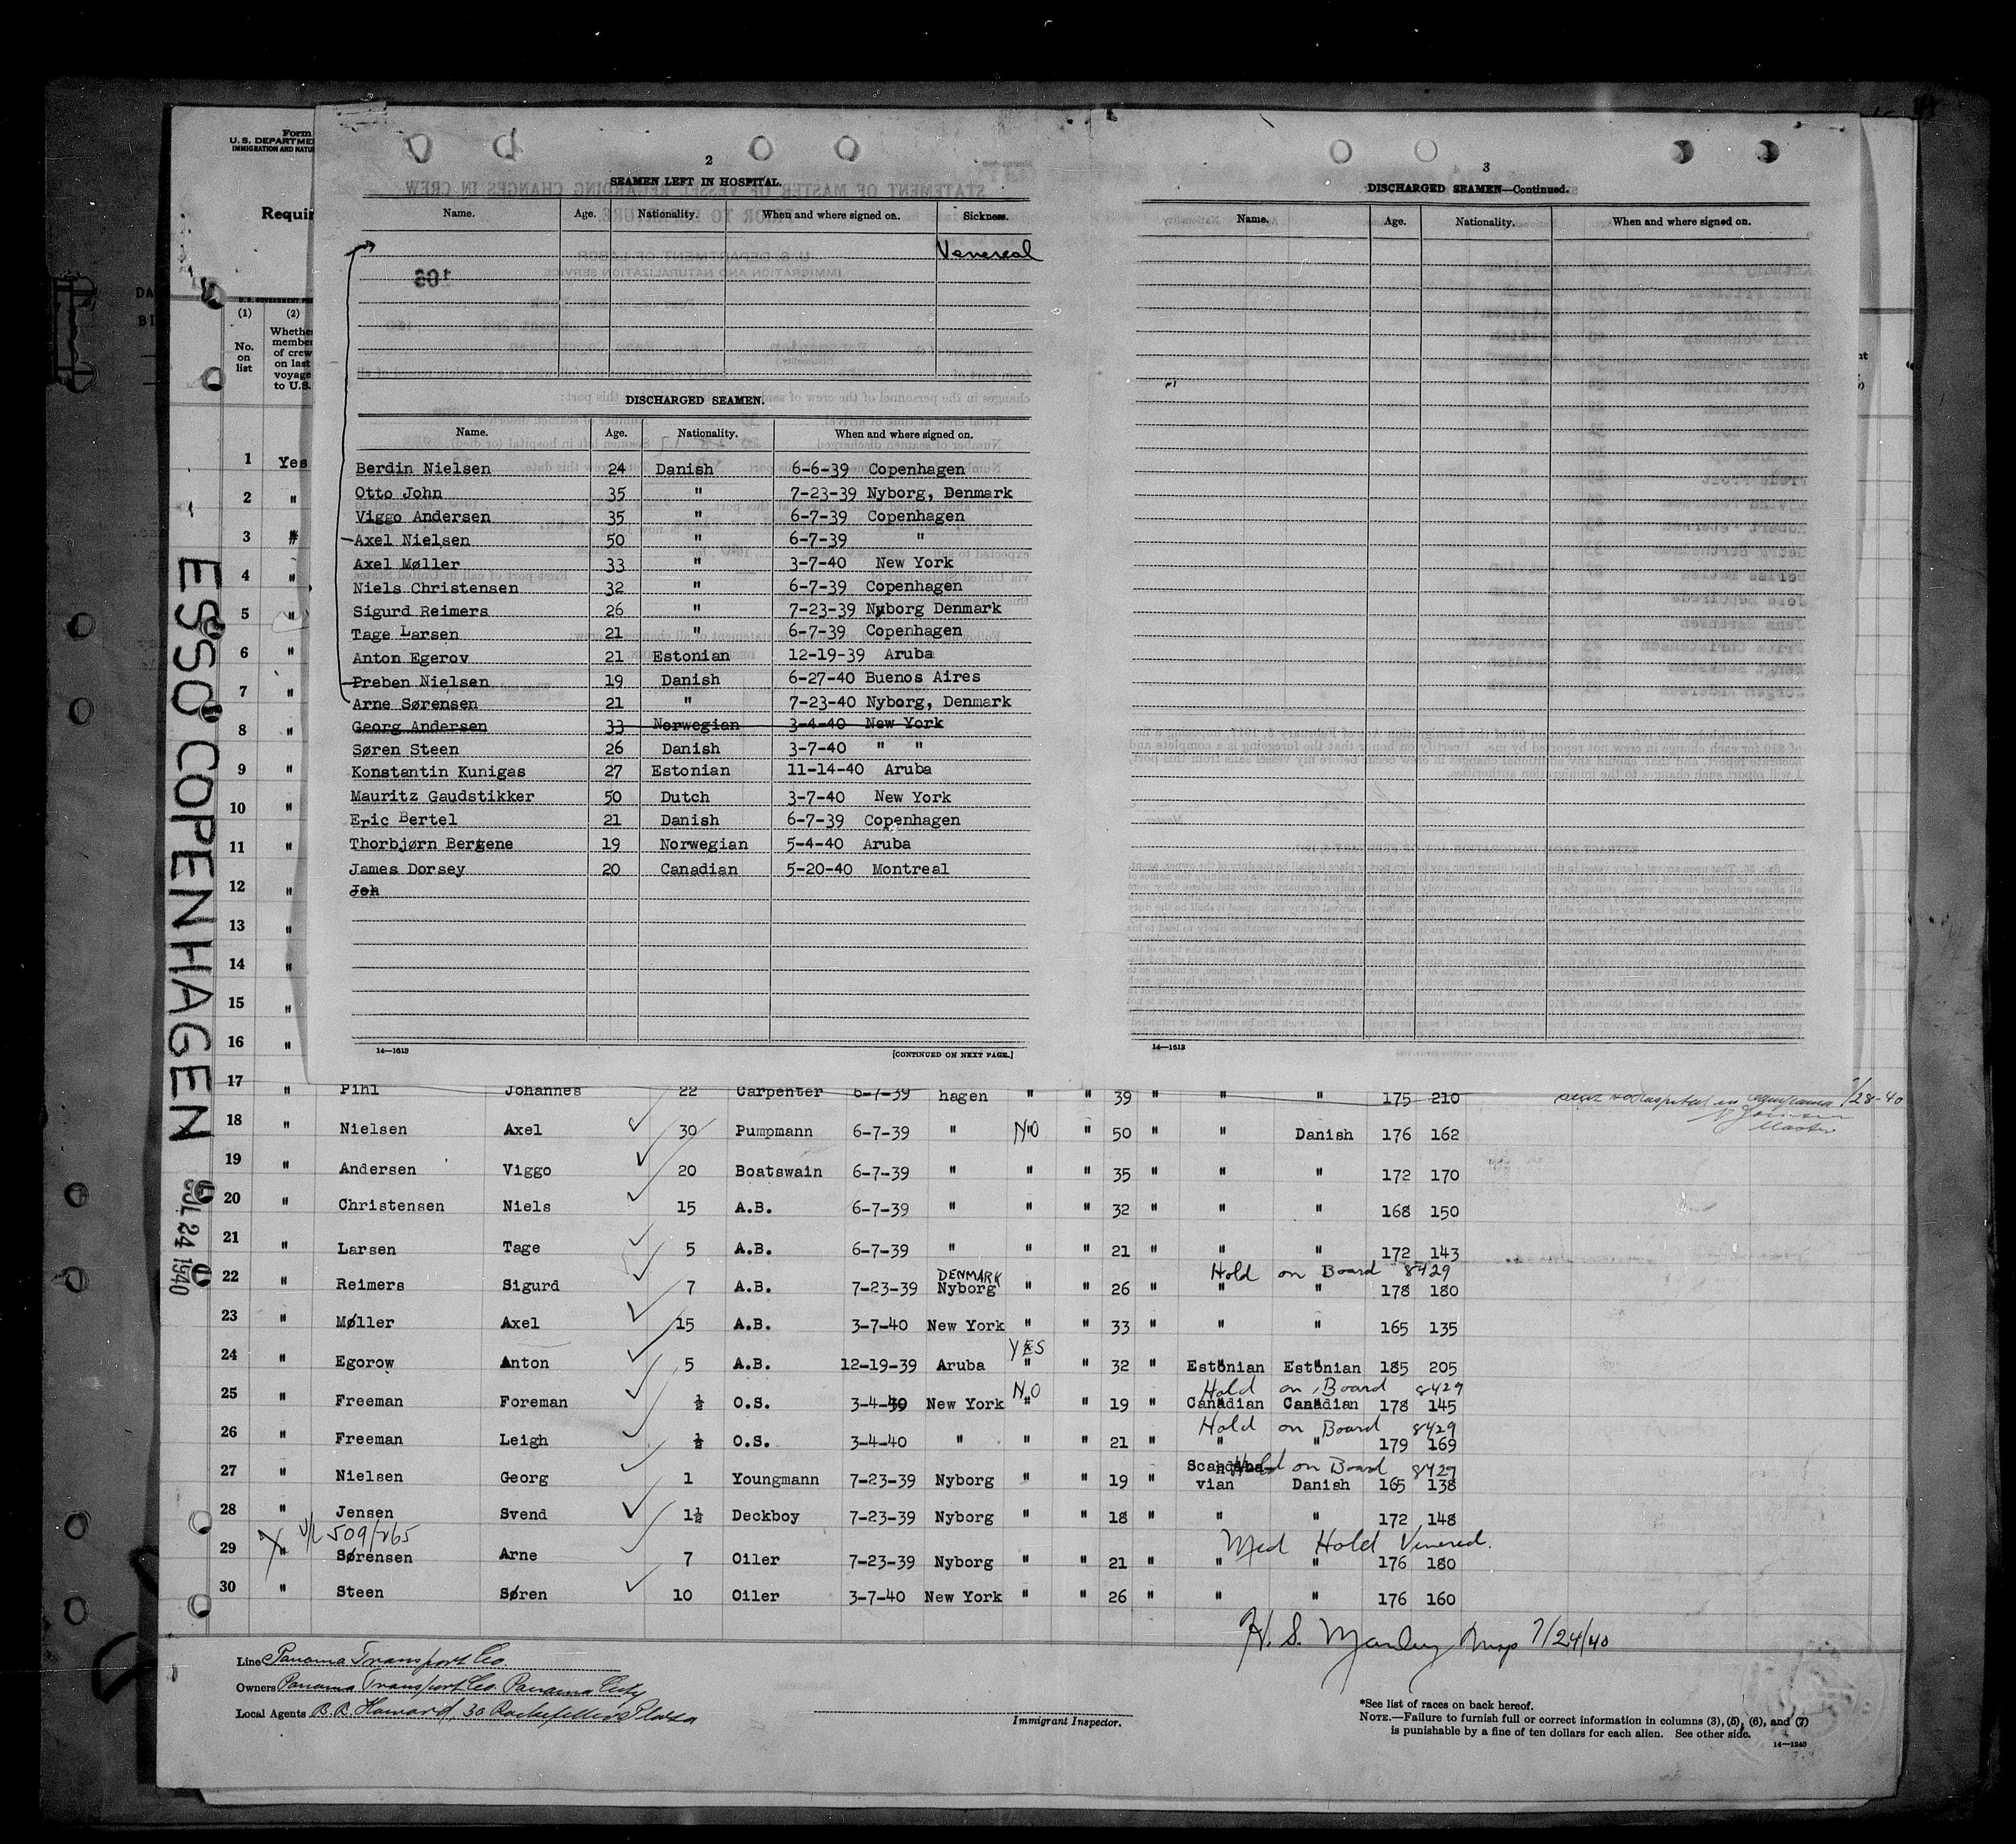 Form
U.S. DEPARTME
IMMIGRATION AND NATU
Requir
(1) (2)
No. on list
Whether member of crew on last voyage to U.S.
ESSO COPENHAGEN
JUL 24 1940
2
SEAMEN LEFT IN HOSPITAL.
Name. Age. Nationality. When and where signed on. Sickness.
Venereal
DISCHARGED SEAMEN.
Name. Age. Nationality. When and where signed on.
Berdin Nielsen 24 Danish 6-6-39 Copenhagen
Otto John 35 " 7-23-39 Nyborg, Denmark
Viggo Andersen 35 " 6-7-39 Copenhagen
Axel Nielsen 50 " 6-7-39 "
Axel Møller 33 " 3-7-40 New York
Niels Christensen 32 " 6-7-39 Copenhagen
Sigurd Reimers 26 " 7-23-39 Nyborg Denmark
Tage Larsen 21 " 6-7-39 Copenhagen
Anton Egerov 21 Estonian 12-19-39 Aruba
Preben Nielsen 19 Danish 6-27-40 Buenos Aires
Arne Sørensen 21 " 7-23-40 Nyborg, Denmark
Georg Andersen 33 Norwegian 3-4-40 New York
Søren Steen 26 Danish 3-7-40 " "
Konstantin Kunigas 27 Estonian 11-14-40 Aruba
Mauritz Gaudstikker 50 Dutch 3-7-40 New York
Eric Bertel 21 Danish 6-7-39 Copenhagen
Thorbjørn Bergene 19 Norwegian 5-4-40 Aruba
James Dorsey 20 Canadian 5-20-40 Montreal
Joh
14—1613 [CONTINUED ON NEXT PAGE.]
3
DISCHARGED SEAMEN—Continued.
Name. Age. Nationality. When and where signed on.
14—1613
1 Yes
2 "
3 "
4 "
5 "
6 "
7 "
8 "
9 "
10 "
11 "
12 "
13 "
14 "
15 "
16 "
17 " Pihl Johannes 22 Carpenter 6-7-39 hagen " " 39 " " " 175 210 7/28-40
Master
18 " Nielsen Axel 30 Pumpmann 6-7-39 " NO " 50 " " Danish 176 162
19 " Andersen Viggo 20 Boatswain 6-7-39 " " " 35 " " " 172 170
20 " Christensen Niels 15 A.B. 6-7-39 " " " 32 " " " 168 150
21 " Larsen Tage 5 A.B. 6-7-39 " " " 21 " " " 172 143
Hold on Board 8429
22 " Reimers Sigurd 7 A.B. 7-23-39 DENMARK Nyborg " " 26 " " " 178 180
23 " Møller Axel 15 A.B. 3-7-40 New York " " 33 " " " 165 135
24 " Egorow Anton 5 A.B. 12-19-39 Aruba YES " 32 " Estonian Estonian 185 205
Hold on Board 8429
25 " Freeman Foreman ½ O.S. 3-4-40 New York NO " 19 " Canadian Canadian 178 145
Hold on Board 8429
26 " Freeman Leigh ½ O.S. 3-4-40 " " " 21 " " " 179 169
Hold on Board 8429
27 " Nielsen Georg 1 Youngmann 7-23-39 Nyborg " " 19 " Scandinavian Danish 165 138
28 " Jensen Svend 1½ Deckboy 7-23-39 Nyborg " " 18 " " " 172 148
509/265 Med Hold Venereal.
29 " Sørensen Arne 7 Oiler 7-23-39 Nyborg " " 21 " " " 176 180
30 " Steen Søren 10 Oiler 3-7-40 New York " " 26 " " " 176 160
H. S. Manley Insp 7/24/40
Line Panama Transport Co.
Owners Panama Transport Co. Panama City
Local Agents B. B. Howard, 30 Rockefeller Plaza
Immigrant Inspector.
*See list of races on back hereof.
NOTE.—Failure to furnish full or correct information in columns (3), (5), (6), and (7)
is punishable by a fine of ten dollars for each alien. See other side.
14—1240